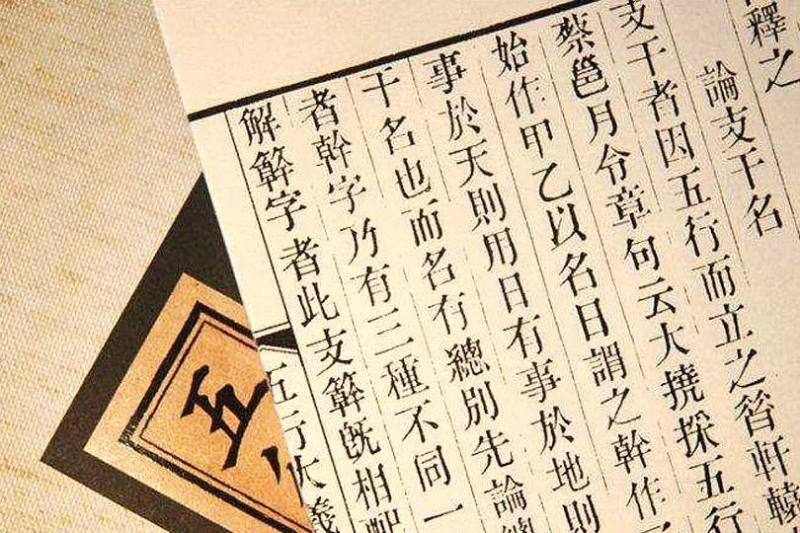 釋之
論支干名
支干者因五行而立之昝軒轅
蔡邕月令章句云大撓採五行
始作甲乙以名日謂之幹作
事於天則用日有事於地則
干名也而名有總別先論總
者幹字乃有三種不同一
解簳字者此支簳旣相配
五行大義
五